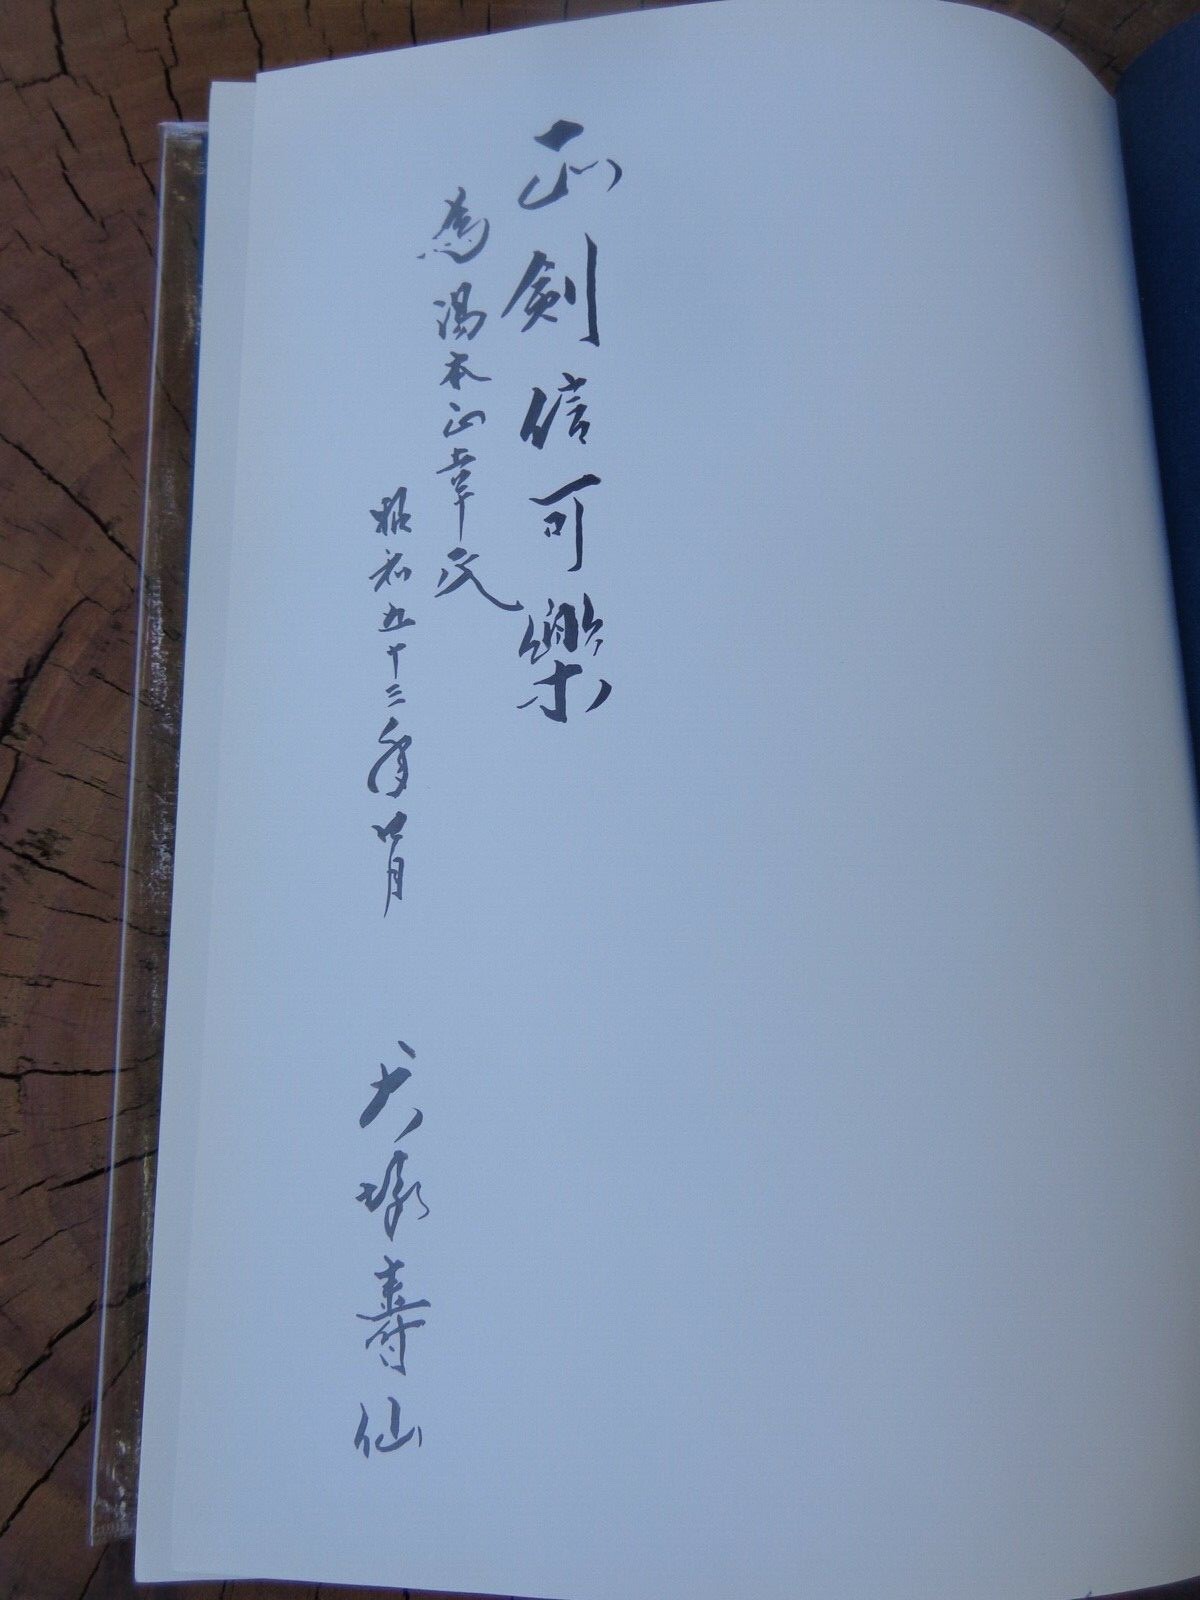 正剣信可樂
為湯本正章氏
昭和五十三年四月
大塚壽仙